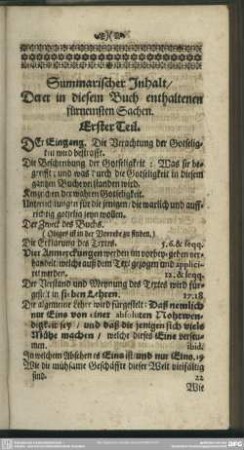 Summarischer Inhalt/
Derer in diesem Buch enthaltenen
fürnemsten Sachen.
Erster Teil.
DEr Eingang. Die Verachtung der Gotselig-
keit wird bestrafft.
Die Beschreibung der Gotseligkeit: Was sie be-
greifft; und was durch die Gotseligkeit in diesem
gantzen Buche verstanden wird.
Kenzeichen der wahren Gotseligkeit.
Unterrichtungen für die jenigen/ die warlich und auff-
richtig gotselig seyn wollen.
Der Zweck des Buchs.
(Dieses ist in der Vorrede zu finden.)
Die Erklärung des Textes. 5.6. & seqq.
Vier Anmerckungen werden im vorbey-gehen ver-
handelt, welche auß dem Text gezogen und applici-
ret werden. 12. & seqq.
Der Verstand und Meynung des Textes wird für-
gestelt in sieben Lehren. 17.18
Die algemeine Lehre wird fürgestelt: Daß nemlich
nur Eins von einer absoluten Nohtwen-
digkeit sey/ und daß die jenigen sich viels
Mühe machen/ welche dieses Eine versau-
men. ibid.
In welchem Absehen es Eins ist und nur Eins. 19
Wie die mühsame Geschäffte dieser Welt vielfältig
sind. 22
Wie